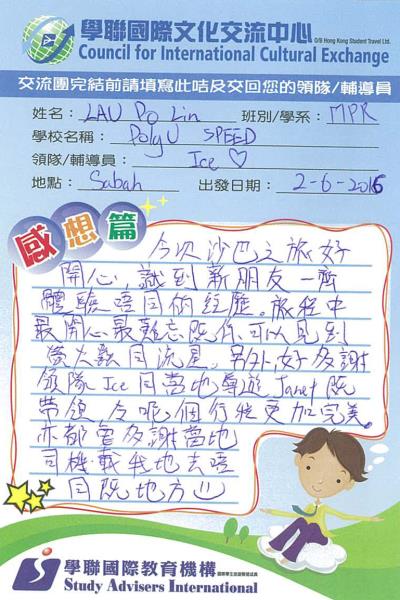 學聯國際文化交流中心
O/B Hong Kong Student Travel Ltd.
Council for International Cultural Exchange
交流團完結前請填寫此咭及交回您的領隊/輔導員
姓名: LAU Po Lin 班別/學系: MPR
學校名稱: PolyU SPEED
領隊/輔導員: Ice ♡
地點: Sabah 出發日期: 2-6-2016
感想篇
今次沙巴之旅好
開心, 識到新朋友一齊
體驗唔同的經歷。旅程中
最開心最難忘既係可以見到
螢火蟲同流星, 另外, 好多謝
領隊 Ice 同當地導遊 Janet 既
帶領, 令呢個行程更加完美。
亦都會多謝當地
司機, 載我地去唔
同既地方
學聯國際教育機構
Study Advisers International